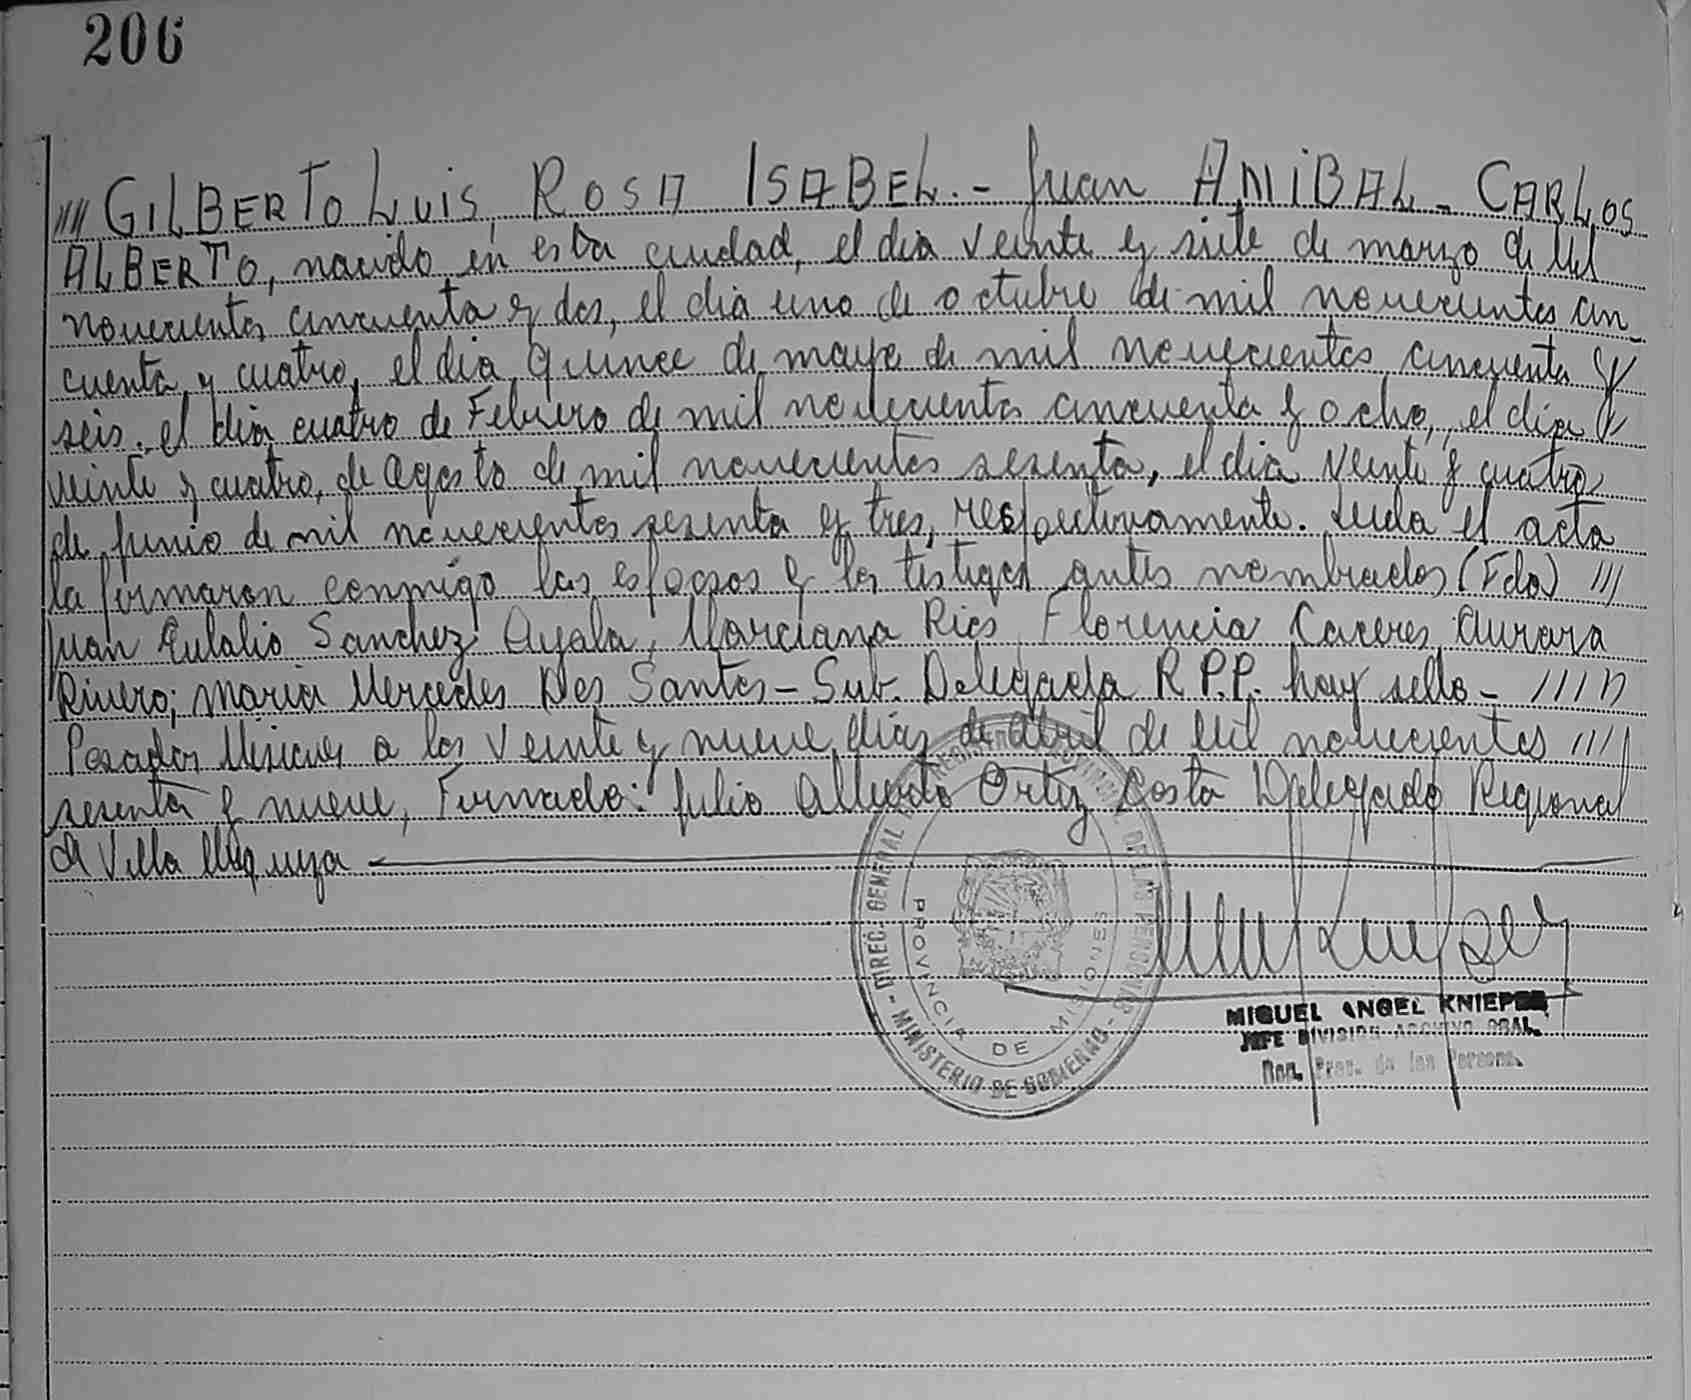 206
//// GILBERTO LUIS, ROSA ISABEL.- Juan ANIBAL - CARLOS
ALBERTO, nacido en esta ciudad, el dia veinte y siete de marzo de Mil
novecientos cincuenta y dos, el dia uno de octubre de mil novecientos cin
cuenta y cuatro, el dia quince de mayo de mil novecientos cincuenta y
seis. el dia cuatro de Febrero de mil novecientos cincuenta y ocho, el dia
veinte y cuatro, de Agosto de mil novecientos sesenta, el dia veinte y cuatro
de Junio de mil novecientos sesenta y tres, respectivamente. Leida el acta
la firmaron conmigo los esposos y los testigos antes nombrados (Fdo) ///
Juan Eulalio Sanchez Ayala, Marciana Rios Florencia Caceres, Aurora
Rivero; Maria Mercedes Dos Santos - Sub. Delegada R.P.P. hay sello - ////
Posadas Misiones a los veinte y nueve dias de Abril de Mil novecientos ////
sesenta y nueve, Firmado: Julio Alberto Ortiz Costa Delegado Regional
de Villa
DIREC. GENERAL DE LAS PERSONAS - MINISTERIO DE GOBIERNO -
PROVINCIA DE MISIONES
MIGUEL ANGEL KNIEPER
JEFE DIVISION ARCHIVO GRAL.
Prov. de las Personas.